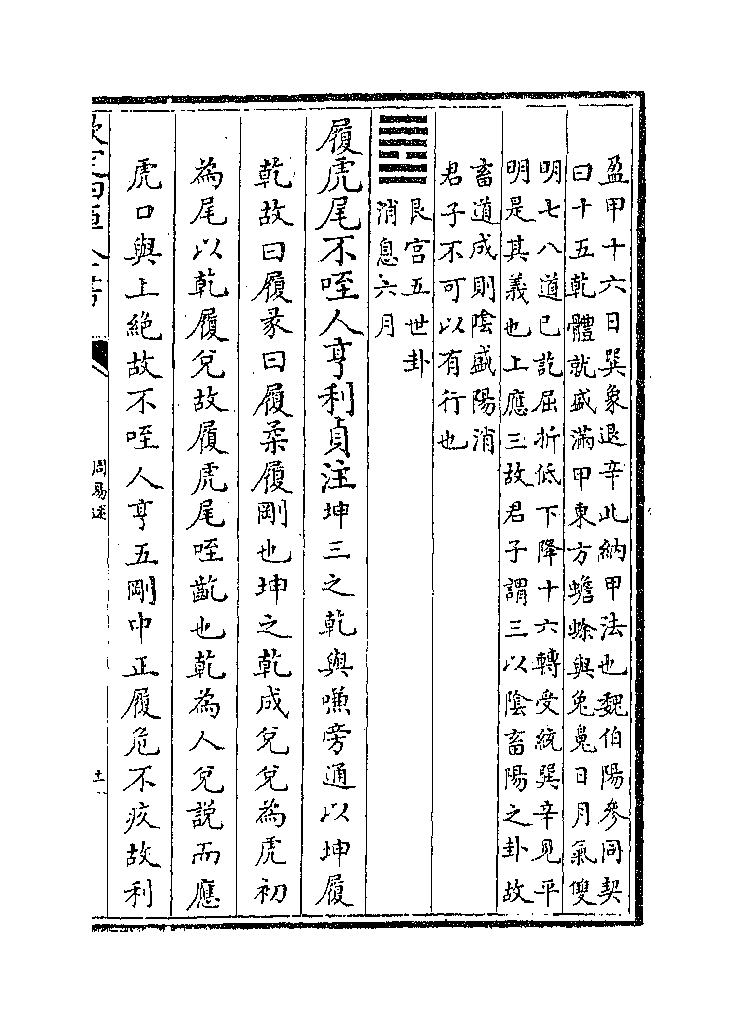 盈甲十六日巽象退辛此納甲法也魏伯陽參同契
曰十五乾體就盛滿甲東方蟾蜍與兔䰟日月氣㕠
明七八道已訖屈折低下降十六轉受統巽辛見平
明是其義也上應三故君子謂三以陰畜陽之卦故
畜道成則陰盛陽消
君子不可以有行也
艮宫五世卦
消息六月
履虎尾不咥人亨利貞注坤三之乾與嗛旁通以坤履
乾故曰履彖曰履柔履剛也坤之乾成兌兌為虎初
為尾以乾履兌故履虎尾咥齕也乾為人兌說而應
虎口與上絶故不咥人亨五剛中正履危不疚故利
周易述